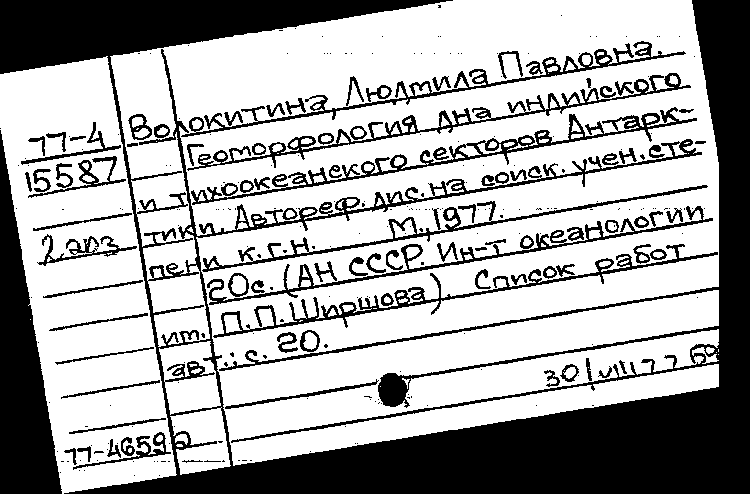 77-4
15587
2 экз
Волокитина, Людмила Павловна.
Геоморфология дна индийского
и тихоокеанского секторов Антарк-
тики. Автореф. дис. на соиск. учен. сте-
пени к.г.н. М., 1977.
20с. (АН СССР. Ин-т океанологии
им. П.П. Ширшова). Список работ
авт.: с. 20.
30/VIII 77
77-46592